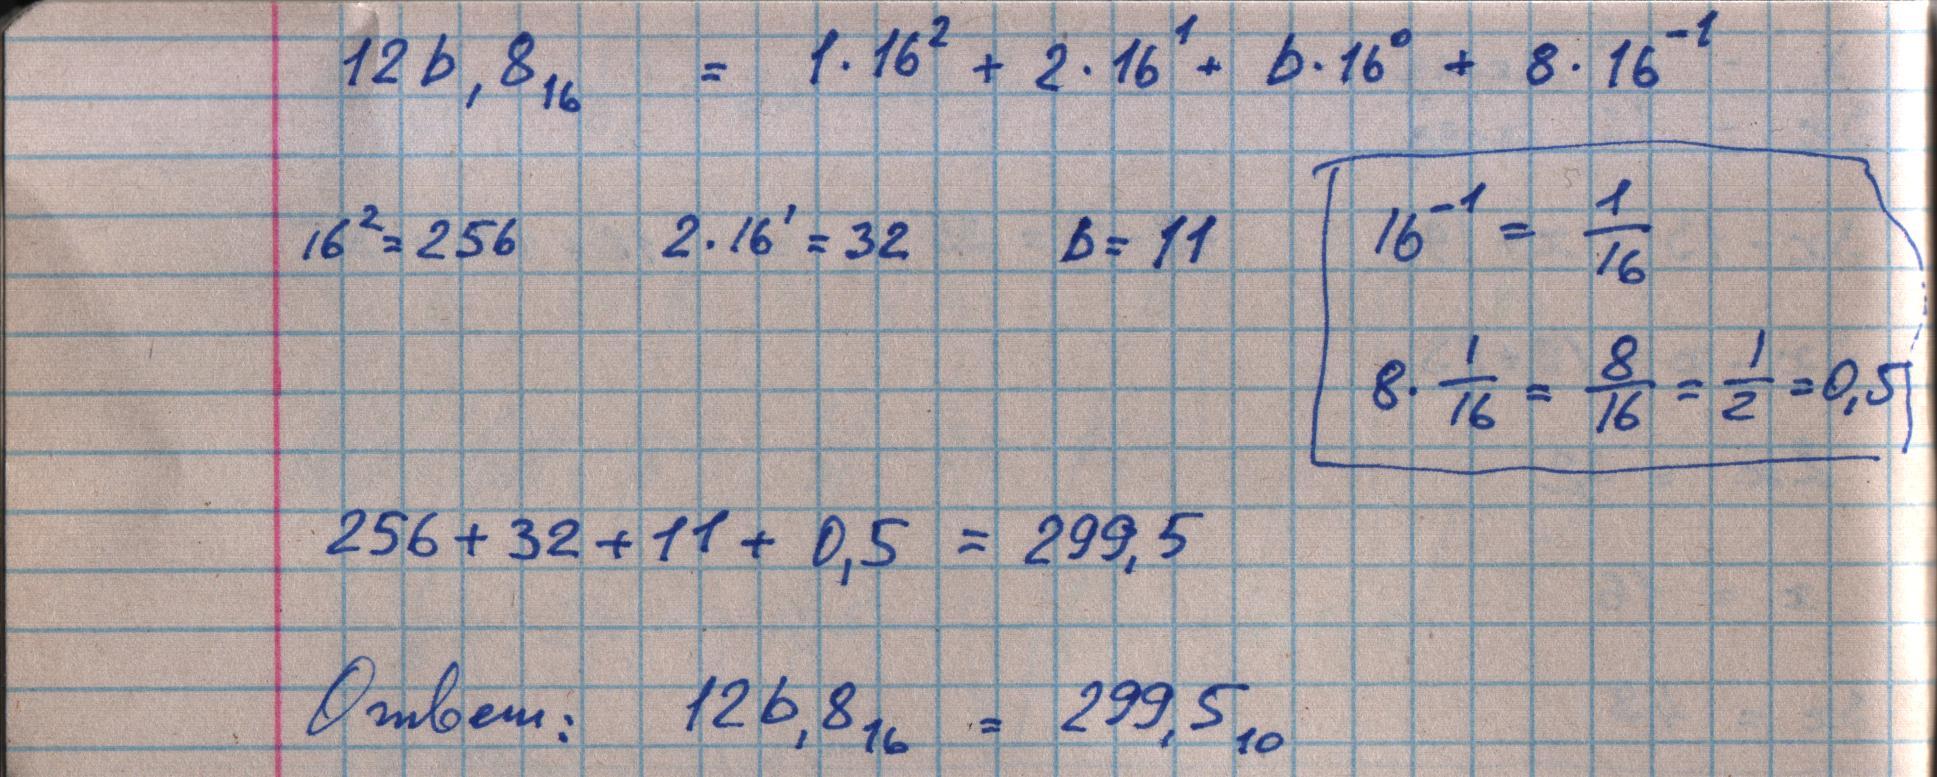 12b,8₁₆ = 1·16² + 2·16¹ + b·16⁰ + 8·16⁻¹
16² = 256 2·16¹ = 32 b = 11 16⁻¹ = 1/16
8·1/16 = 8/16 = 1/2 = 0,5
256 + 32 + 11 + 0,5 = 299,5
Ответ: 12b,8₁₆ = 299,5₁₀